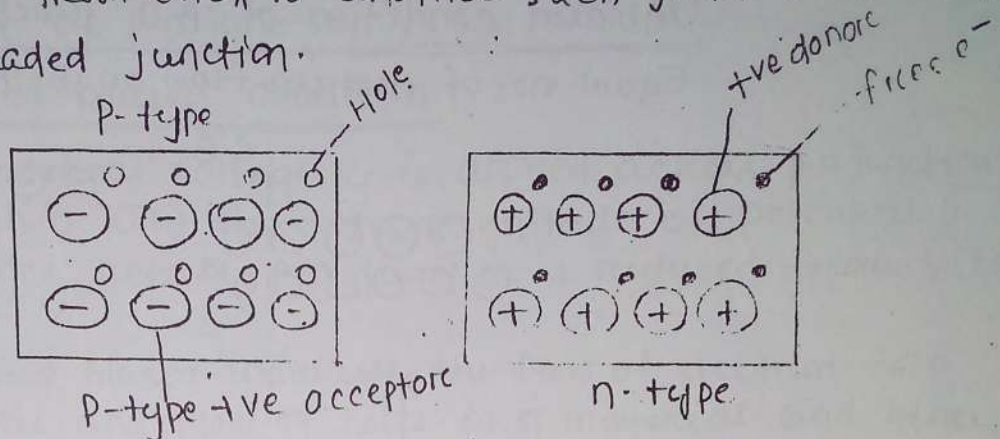 aded junction.
P-type
Hole
+ve donorc
free e⁻
P-type -ve acceptorc
n-type